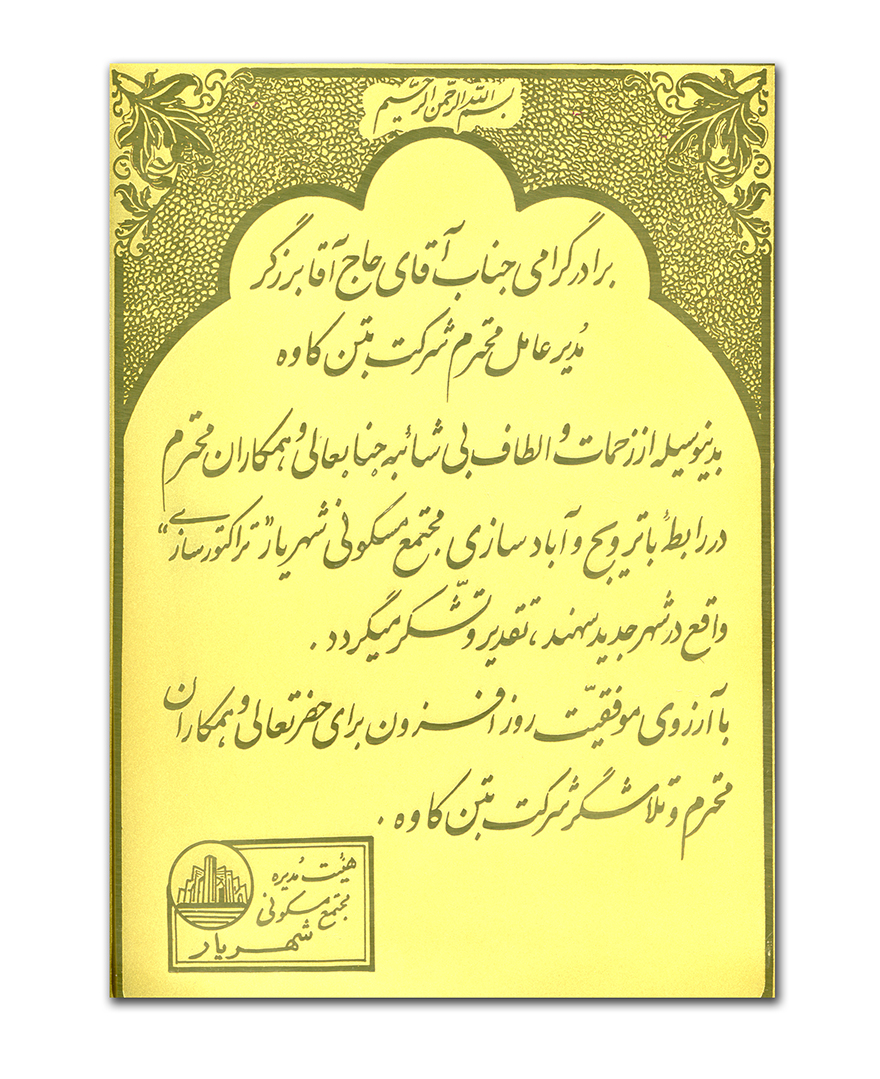 بسم الله الرحمن الرحیم
برادر گرامی جناب آقای حاج آقا برزگر
مُدیر عامل محترم شرکت بتن کاوه
بدینوسیله از زحمات و الطاف بی شائبه جنابعالی و همکاران محترم
در رابطهٔ با ترویج و آباد سازی مجتمع مسکونی شهریار "تراکتورسازی"
واقع در شهر جدید سهند، تقدیر و تشّکر میگردد.
با آرزوی موفقیّت روز افزون برای حضرتعالی و همکاران
محترم و تلاشگر شرکت بتن کاوه.
هیئت مُدیره
مجتمع مسکونی
شهریار